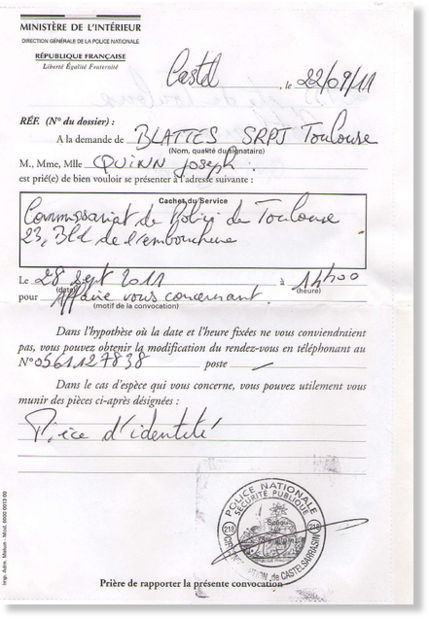 MINISTÈRE DE L'INTÉRIEUR
DIRECTION GÉNÉRALE DE LA POLICE NATIONALE
RÉPUBLIQUE FRANÇAISE
Liberté Égalité Fraternité
Castel , le 22/09/11
RÉF. (N° du dossier) :
A la demande de BLATTES SRPJ Toulouse
(Nom, qualité du signataire)
M., Mme, Mlle QUINN Joseph.
est prié(e) de bien vouloir se présenter à l'adresse suivante :
Cachet du Service
Commissariat de Police de Toulouse
23, Bld de l'embouchure
Le 28 Sept 2011 à 14h00
(date) (heure)
pour Affaire vous concernant.
(motif de la convocation)
Dans l'hypothèse où la date et l'heure fixées ne vous conviendraient
pas, vous pouvez obtenir la modification du rendez-vous en téléphonant au
N° 0561127838 poste –
Dans le cas d'espèce qui vous concerne, vous pouvez utilement vous
munir des pièces ci-après désignées :
Pièce d'identité
POLICE NATIONALE
SÉCURITÉ PUBLIQUE
218 218
CIRCONSCRIPTION de CASTELSARRASIN
Prière de rapporter la présente convocation
Imp. Adm. Melun - Mod. 6000 0013 00